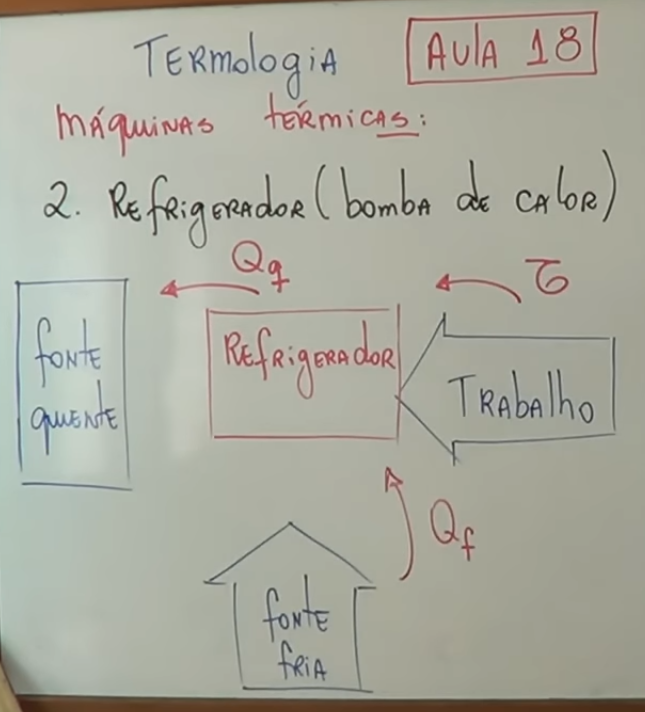 Termologia
Aula 18
Máquinas térmicas:
2. Refrigerador (bomba de calor)
Qq
τ
fonte
quente
Refrigerador
Trabalho
Qf
fonte
fria